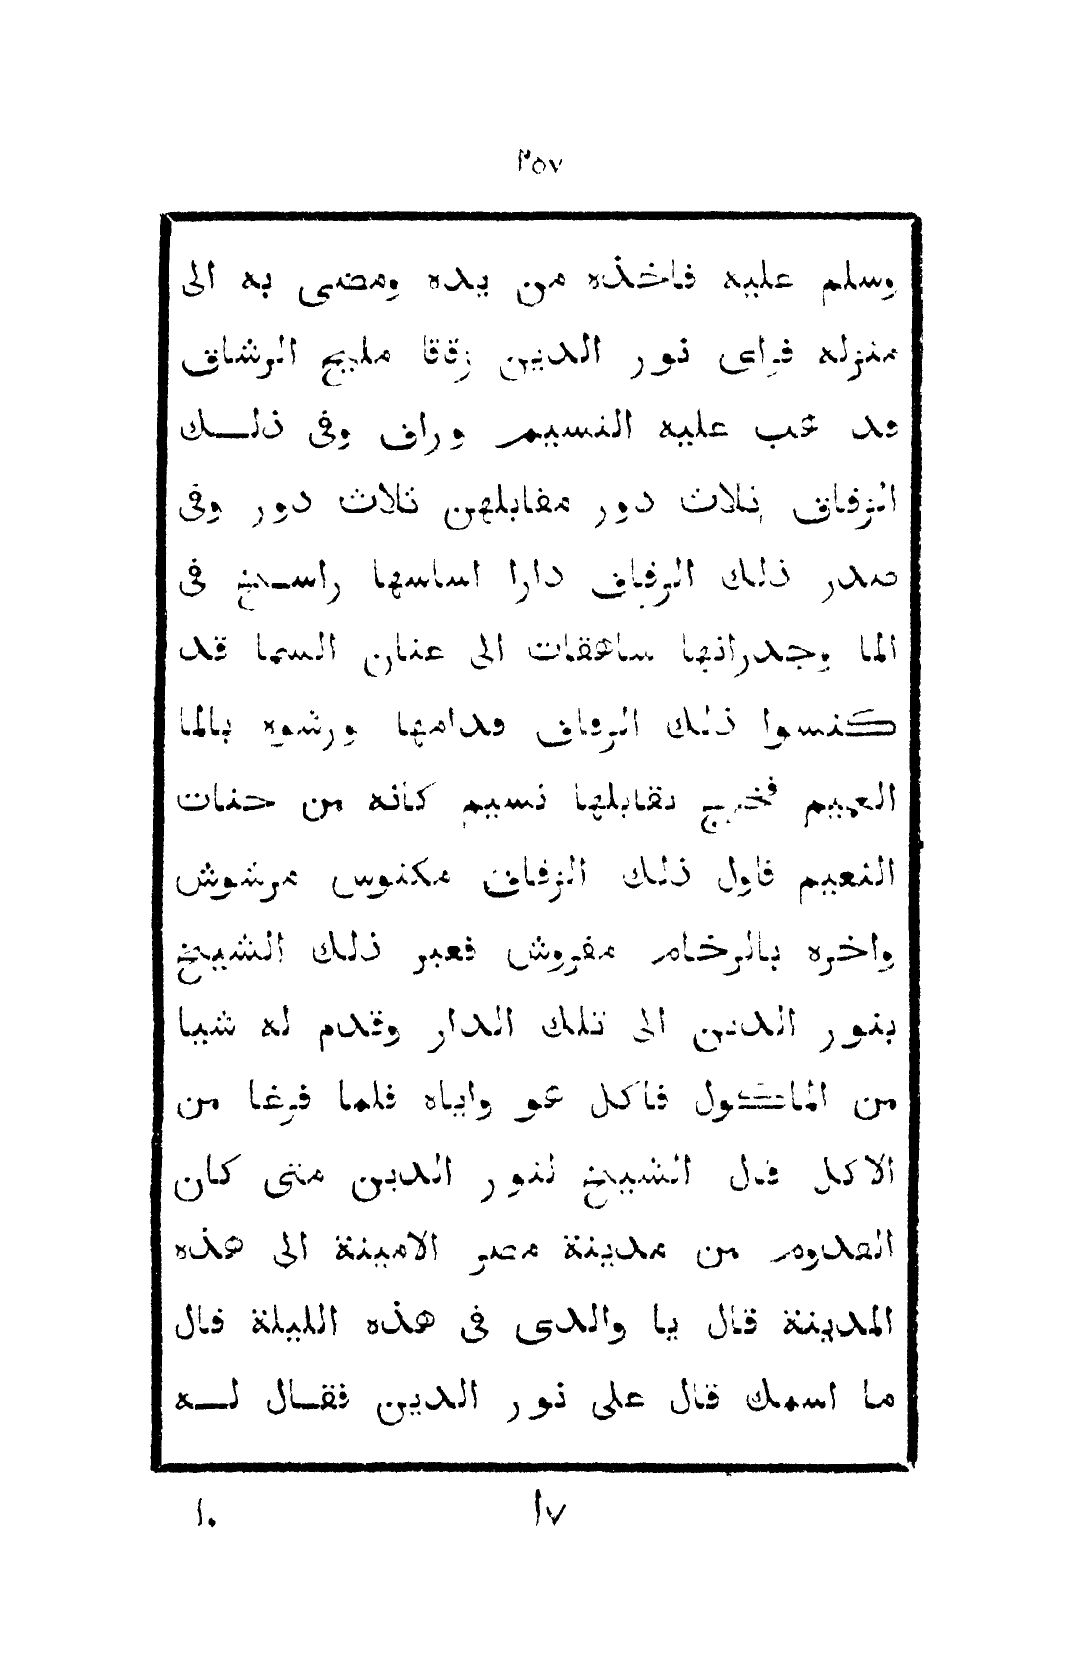 ٢٥٧
وسلم عليه فاخذه من يده ومضى به الى
منزله فراى نور الدين زقاقا مليح الرشاق
قد هب عليه النسيم وراق وفى ذلـــك
الزقاق ثلاث دور مقابلهن ثلاث دور وفى
صدر ذلك الزقاق دارا اساسها راســخ فى
الما وجدرانها ساهقات الى عنان السما قد
كنسوا ذلك الزقاق قدامها ورشوه بالما
العميم فخرج يقابلها نسيم كانه من جنات
النعيم فاول ذلك الزقاق مكنوس مرشوش
واخره بالرخام مفروش فعبر ذلك الشيخ
بنور الدين الى تلك الدار وقدم له شيا
من الماكول فاكل هو واياه فلما فرغا من
الاكل قال الشيخ لنور الدين متى كان
القدوم من مدينة مصر الامينة الى هذه
المدينة قال يا والدى فى هذه الليلة قال
ما اسمك قال على نور الدين فقــال لـــه
١٧
١٠